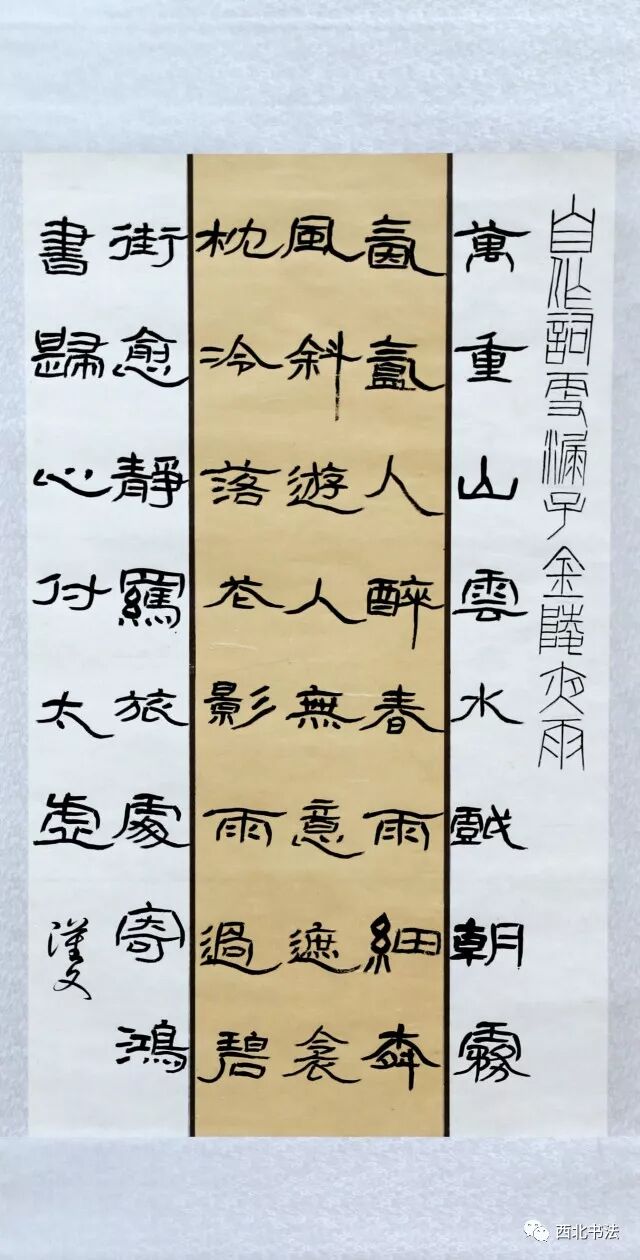 自作詞更漏子金陵夜雨
萬重山雲水戲朝霧
氤氳人醉春雨細奔
風斜遊人無意遮衾
枕冷落花影雨過碧
街愈靜羈旅處寄鴻
書歸心付太虛
漢文
西北书法